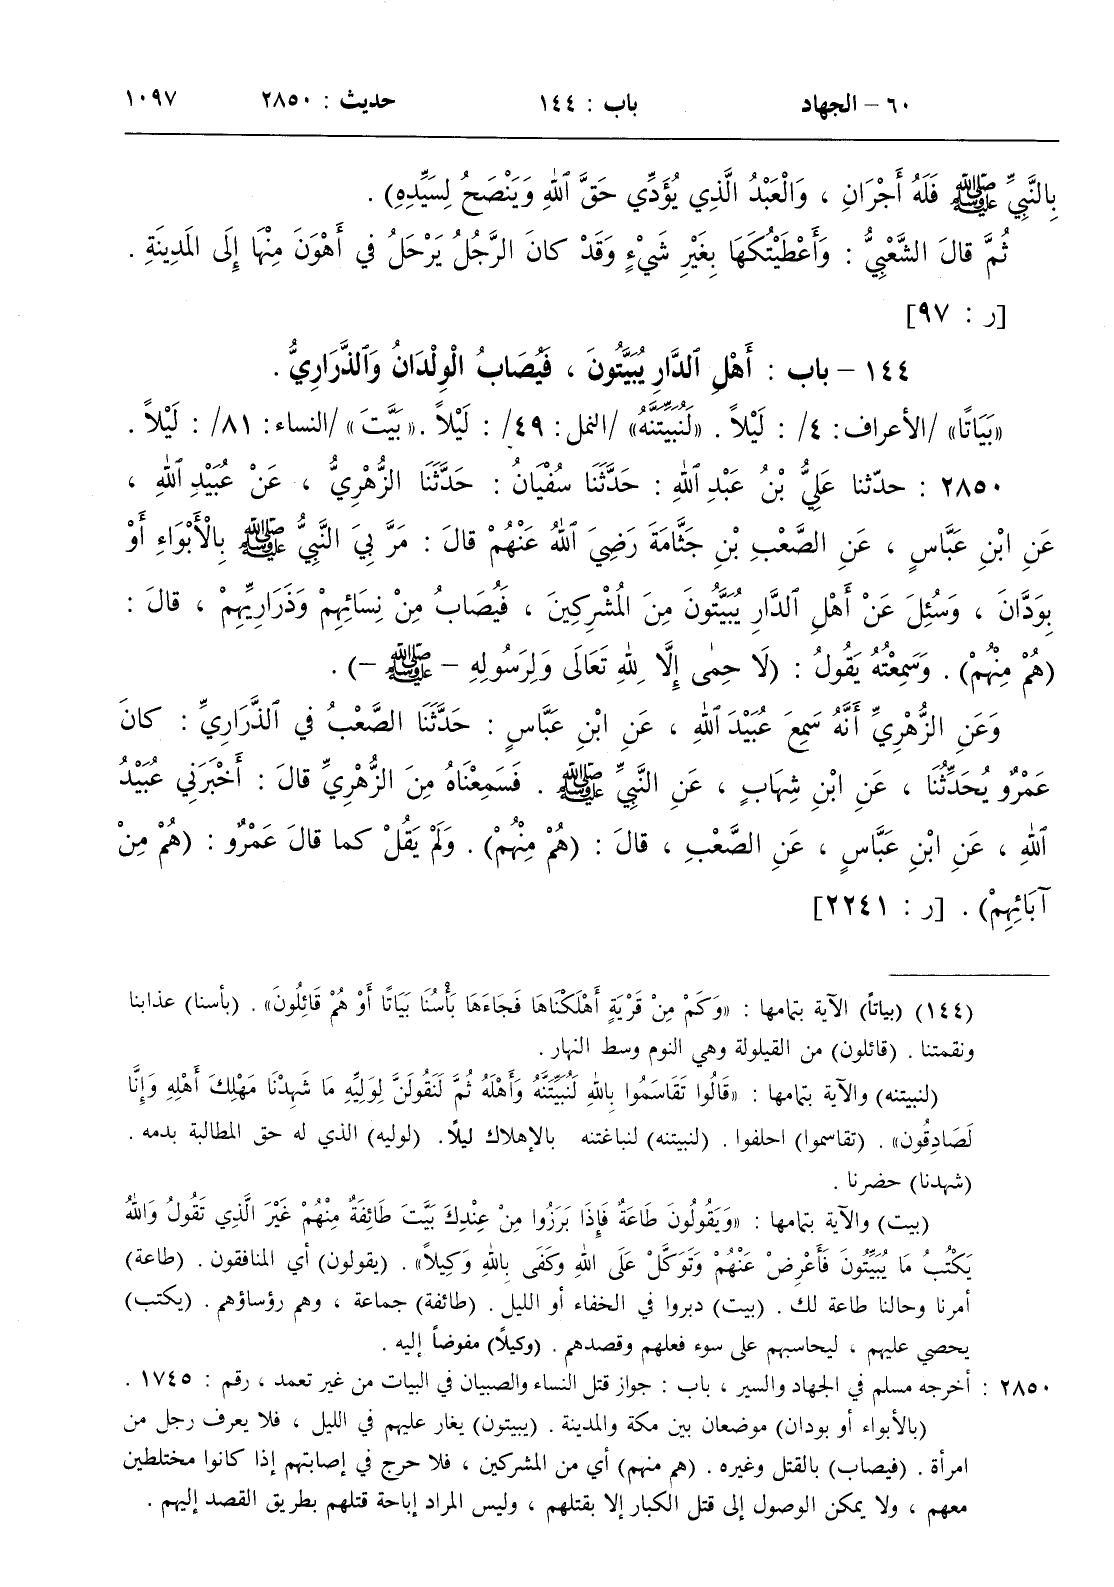 ٦٠ – الجهاد باب : ١٤٤ حديث : ٢٨٥٠ ١٠٩٧
بِالنَّبِيِّ ﷺ فَلَهُ أَجْرَانِ ، وَالْعَبْدُ الَّذِي يُؤَدِّي حَقَّ اللهِ وَيَنْصَحُ لِسَيِّدِهِ) .
ثُمَّ قالَ الشَّعْبِيُّ : وَأَعْطَيْتُكَهَا بِغَيْرِ شَيْءٍ وَقَدْ كانَ الرَّجُلُ يَرْحَلُ في أَهْوَنَ مِنْهَا إِلَى المَدِينَةِ .
[ر : ٩٧]
١٤٤ – باب : أَهْلِ الدَّارِ يُبَيَّتُونَ ، فَيُصَابُ الْوِلْدَانُ وَالذَّرَارِيُّ .
«بَيَاتًا» /الأعراف: ٤/ : لَيْلاً . «لَنُبَيِّتَنَّهُ» /النمل: ٤٩/ : لَيْلاً . «بَيَّتَ» /النساء: ٨١/ : لَيْلاً .
٢٨٥٠ : حدّثنا عَلِيُّ بْنُ عَبْدِ اللهِ : حَدَّثَنَا سُفْيَانُ : حَدَّثَنَا الزُّهْرِيُّ ، عَنْ عُبَيْدِ اللهِ ،
عَنِ ابْنِ عَبَّاسٍ ، عَنِ الصَّعْبِ بْنِ جَثَّامَةَ رَضِيَ اللهُ عَنْهُمْ قالَ : مَرَّ بِيَ النَّبِيُّ ﷺ بِالْأَبْوَاءِ أَوْ
بِوَدَّانَ ، وَسُئِلَ عَنْ أَهْلِ الدَّارِ يُبَيَّتُونَ مِنَ المُشْرِكِينَ ، فَيُصَابُ مِنْ نِسَائِهِمْ وَذَرَارِيِّهِمْ ، قالَ :
(هُمْ مِنْهُمْ) . وَسَمِعْتُهُ يَقُولُ : (لَا حِمٰى إِلَّا لِلهِ تَعَالَى وَلِرَسُولِهِ – ﷺ –) .
وَعَنِ الزُّهْرِيِّ أَنَّهُ سَمِعَ عُبَيْدَ اللهِ ، عَنِ ابْنِ عَبَّاسٍ : حَدَّثَنَا الصَّعْبُ في الذَّرَارِيِّ : كانَ
عَمْرٌو يُحَدِّثُنَا ، عَنِ ابْنِ شِهَابٍ ، عَنِ النَّبِيِّ ﷺ . فَسَمِعْنَاهُ مِنَ الزُّهْرِيِّ قالَ : أَخْبَرَنِي عُبَيْدُ
اللهِ ، عَنِ ابْنِ عَبَّاسٍ ، عَنِ الصَّعْبِ ، قالَ : (هُمْ مِنْهُمْ) . وَلَمْ يَقُلْ كما قالَ عَمْرٌو : (هُمْ مِنْ
آبَائِهِمْ) . [ر : ٢٢٤١]
(١٤٤) (بياتاً) الآية بتمامها : «وَكَمْ مِنْ قَرْيَةٍ أَهْلَكْنَاهَا فَجَاءَهَا بَأْسُنَا بَيَاتًا أَوْ هُمْ قَائِلُونَ» . (بأسنا) عذابنا
ونقمتنا . (قائلون) من القيلولة وهي النوم وسط النهار .
(لنبيتنه) والآية بتمامها : «قَالُوا تَقَاسَمُوا بِاللهِ لَنُبَيِّتَنَّهُ وَأَهْلَهُ ثُمَّ لَنَقُولَنَّ لِوَلِيِّهِ مَا شَهِدْنَا مَهْلِكَ أَهْلِهِ وَإِنَّا
لَصَادِقُون» . (تقاسموا) احلفوا . (لنبيتنه) لنباغتنه بالإهلاك ليلًا. (لوليه) الذي له حق المطالبة بدمه .
(شهدنا) حضرنا .
(بيت) والآية بتمامها : «وَيَقُولُونَ طَاعَةٌ فَإِذَا بَرَزُوا مِنْ عِنْدِكَ بَيَّتَ طَائِفَةٌ مِنْهُمْ غَيْرَ الَّذِي تَقُولُ وَاللهُ
يَكْتُبُ مَا يُبَيِّتُونَ فَأَعْرِضْ عَنْهُمْ وَتَوَكَّلْ عَلَى اللهِ وَكَفَى بِاللهِ وَكِيلاً» . (يقولون) أي المنافقون . (طاعة)
أمرنا وحالنا طاعة لك . (بيت) دبروا في الخفاء أو الليل . (طائفة) جماعة ، وهم رؤساؤهم . (يكتب)
يحصي عليهم ، ليحاسبهم على سوء فعلهم وقصدهم . (وكيلًا) مفوضاً إليه .
٢٨٥٠ : أخرجه مسلم في الجهاد والسير ، باب : جواز قتل النساء والصبيان في البيات من غير تعمد ، رقم : ١٧٤٥ .
(بالأبواء أو بودان) موضعان بين مكة والمدينة . (يبيتون) يغار عليهم في الليل ، فلا يعرف رجل من
امرأة . (فيصاب) بالقتل وغيره . (هم منهم) أي من المشركين ، فلا حرج في إصابتهم إذا كانوا مختلطين
معهم ، ولا يمكن الوصول إلى قتل الكبار إلا بقتلهم ، وليس المراد إباحة قتلهم بطريق القصد إليهم .